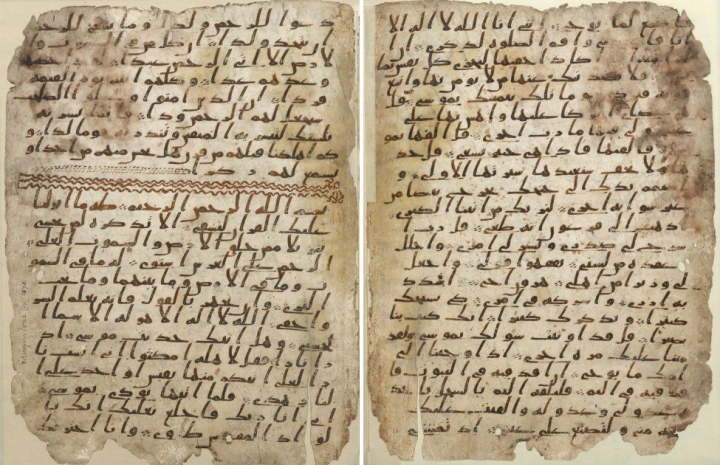 دعوا للرحمن ولدا وما ينبغي للرحمن
ان يتخذ ولدا ان كل من في وا
لارض الا اتي الرحمن عبدا
وعدهم عدا وكلهم اتيه يوم القيمة
فردا ان الذين امنوا وعملوا الصلحت
سيجعل لهم الرحمن ودا فانما يسرنه
بلسنك لتبشر به المتقين وتنذر به قوما لدا و
كم اهلكنا قبلهم من قرن هل تحس منهم من احد او
تسمع لهم ركزا
بسم الله الرحمن الرحيم طه ما انزلنا
عليك القران لتشقى الا تذكرة لمن يخشى
تنزيلا ممن خلق الارض والسموت العلى
الرحمن على العرش استوى له ما في السمو
ت وما في الارض وما بينهما وما تحت
الثرى وان تجهر بالقول فانه يعلم السر
واخفى الله لا اله الا هو له الاسما ا
لحسنى وهل اتيك حديث موسى اذ
را نارا فقل لاهله امكثوا اني انست نا
را لعلي اتيكم منها بقبس او اجد على ا
لنار هدى فلما اتيها نودي يموسى
اني انا ربك فاخلع نعليك انك با
لواد المقدس طوى وانا اختر
فاستمع لما يوحى انني انا الله لا اله الا
انا فا واقم الصلوة لذكري ان ا
اكاد اخفيها لتجزى كل نفس بما
فلا يصدنك عنها من لا يومن بها واتبع
هويه فتردى وما تلك بيمينك يموسى قل
هي عصاي عليها واهش بها على
ولي فيها مرب اخرى قل القها يمو
سى فالقيها فاذا هي حية تسعى قل خذ
ها ولا تخف سنعيدها سيرتها الاولى و
اضمم يدك الى جنحك تخرج بيضا من
غير سو اية اخرى لنريك من ايتنا الكبرى
اذهب الى فرعون انه طغى قل رب ا
شرح لي صدري ويسر لي امري واحلل
عقدة من لسني يفقهوا قولي واجعل
لي وزيرا من اهلي هرون اخي اشدد
به ازري واشركه في امري كي نسبحك
كثيرا ونذكرك كثيرا انك كنت بنا
بصيرا قل قد اوتيت سولك يموسى ولقد
مننا عليك مرة اخرى اذ اوحينا الى
امك ما يوحى ان اقذفيه في التبوت فا
قذفيه في اليم فليلقه اليم بالسحل ياخذه
عدو لي وعدو له والقيت عليك
محبة مني ولتصنع على عيني اذ تمشي